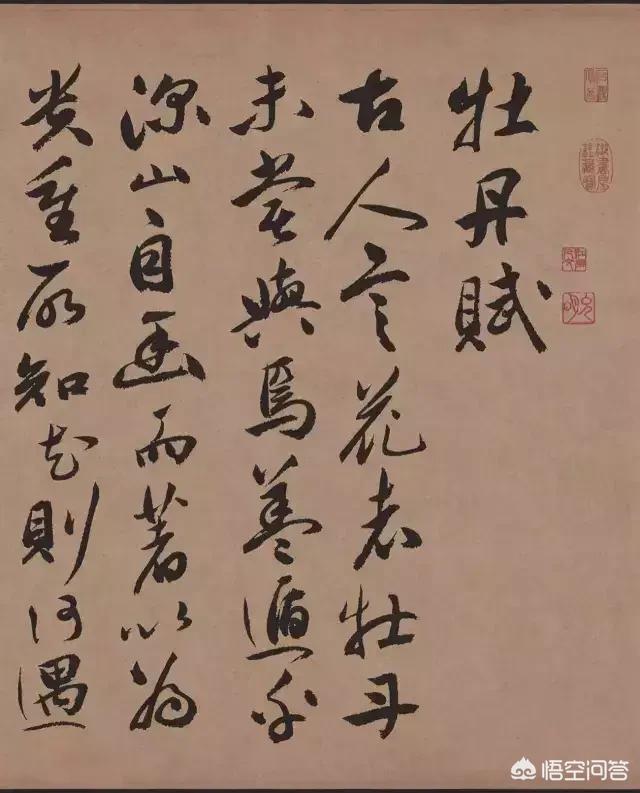 牡丹賦
古人言花者牡丹
未嘗與焉蓋遁於
深山自幽而著以為
貴重所知花則何遇
悟空问答